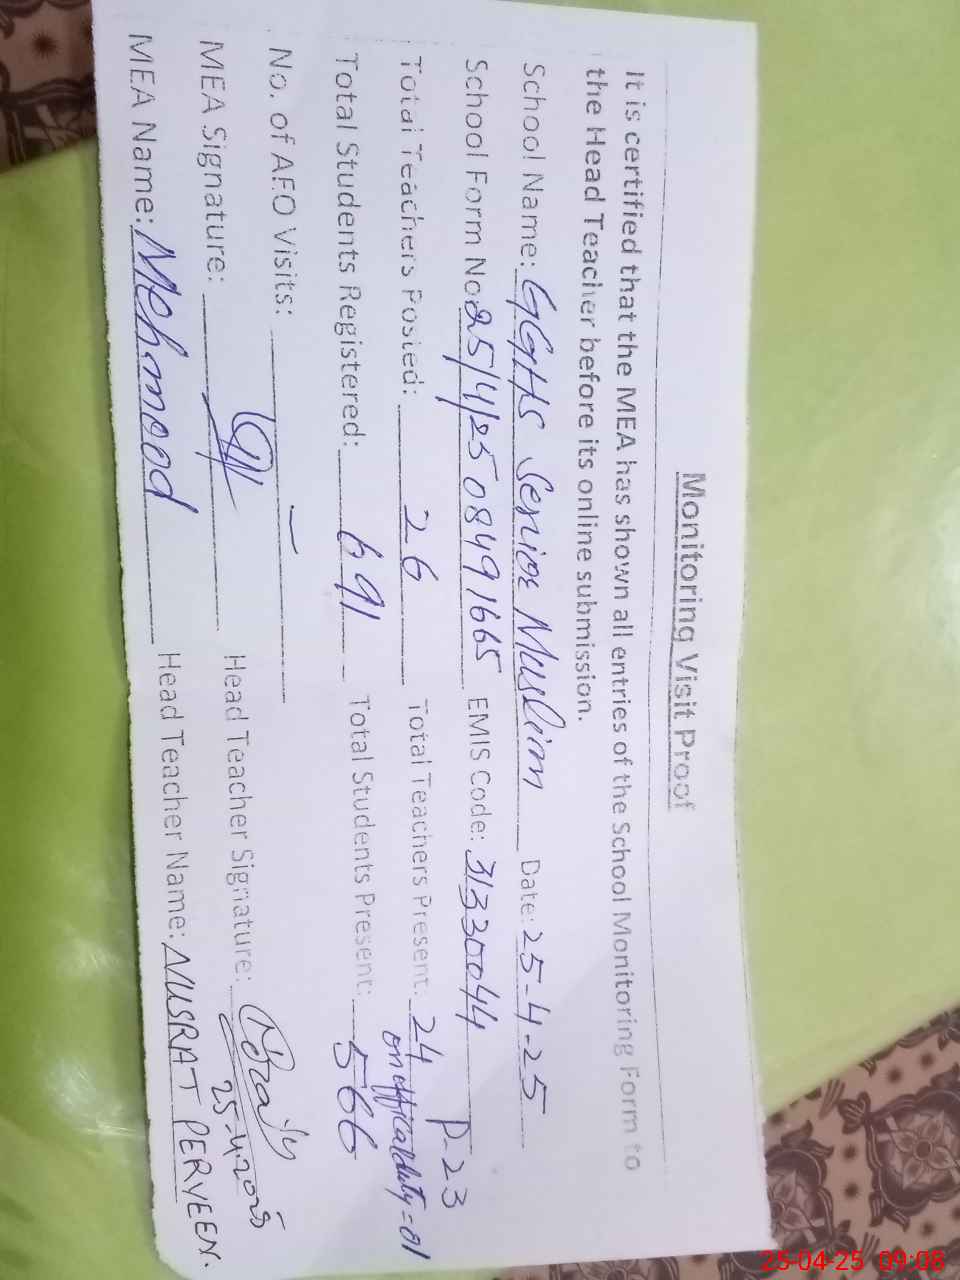 Monitoring Visit Proof
It is certified that the MEA has shown all entries of the School Monitoring Form to
the Head Teacher before its online submission.
School Name: GGHS Senior Muslim Date: 25-4-25
School Form No: 25/4/25 08491665 EMIS Code: 31330044
P-23
Total Teachers Posted: 26 Total Teachers Present: 24
on official duty = 01
Total Students Registered: 691 Total Students Present: 566
No. of AEO Visits: —
MEA Signature: Head Teacher Signature:
25-4-2025
MEA Name: Mehmood Head Teacher Name: NUSRAT PERVEEN.
25-04-25 09:08